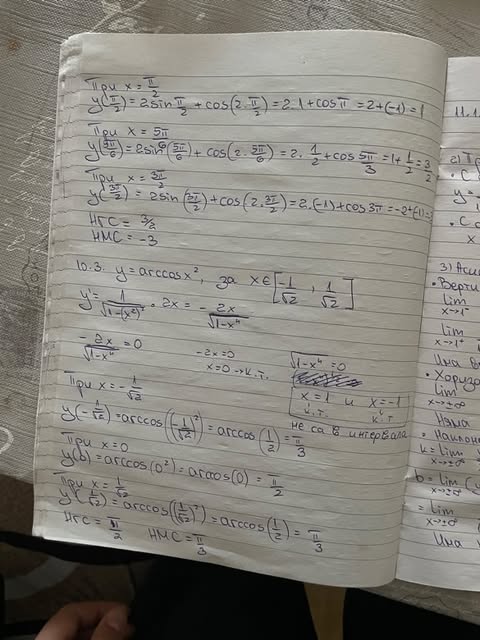 При x = π/2
y(π/2) = 2sin π/2 + cos(2·π/2) = 2·1 + cosπ = 2 + (-1) = 1
При x = 5π/6
y(5π/6) = 2sin(5π/6) + cos(2·5π/6) = 2·1/2 + cos 5π/3 = 1 + 1/2 = 3/2
При x = 3π/2
y(3π/2) = 2sin(3π/2) + cos(2·3π/2) = 2·(-1) + cos3π = -2 + (-1) =
НГС = 3/2
НМС = -3
10.3. y = arccosx², за x ∈ [-1/√2, 1/√2]
y' = 1/√(1-(x²)²) · 2x = - 2x/√(1-x⁴)
-2x/√(1-x⁴) = 0
-2x = 0
x = 0 → к.т.
√(1-x⁴) = 0
x = 1 и x = -1
к.т. к.т.
не са в интервала
При x = -1/√2
y(-1/√2) = arccos((-1/√2)²) = arccos(1/2) = π/3
При x = 0
y(0) = arccos(0²) = arccos(0) = π/2
При x = 1/√2
y(1/√2) = arccos((1/√2)²) = arccos(1/2) = π/3
НГС = π/2 НМС = π/3
11.1
2) Тр
• С
y =
• С о
x
3) Аси
• Верти
lim
x→1⁺
lim
x→1⁺
Има в
• Хориз
lim
x→±∞
Няма
• Наклон
k = lim
x→±∞
b = lim (y
x→±∞
= lim
x→±∞
Има